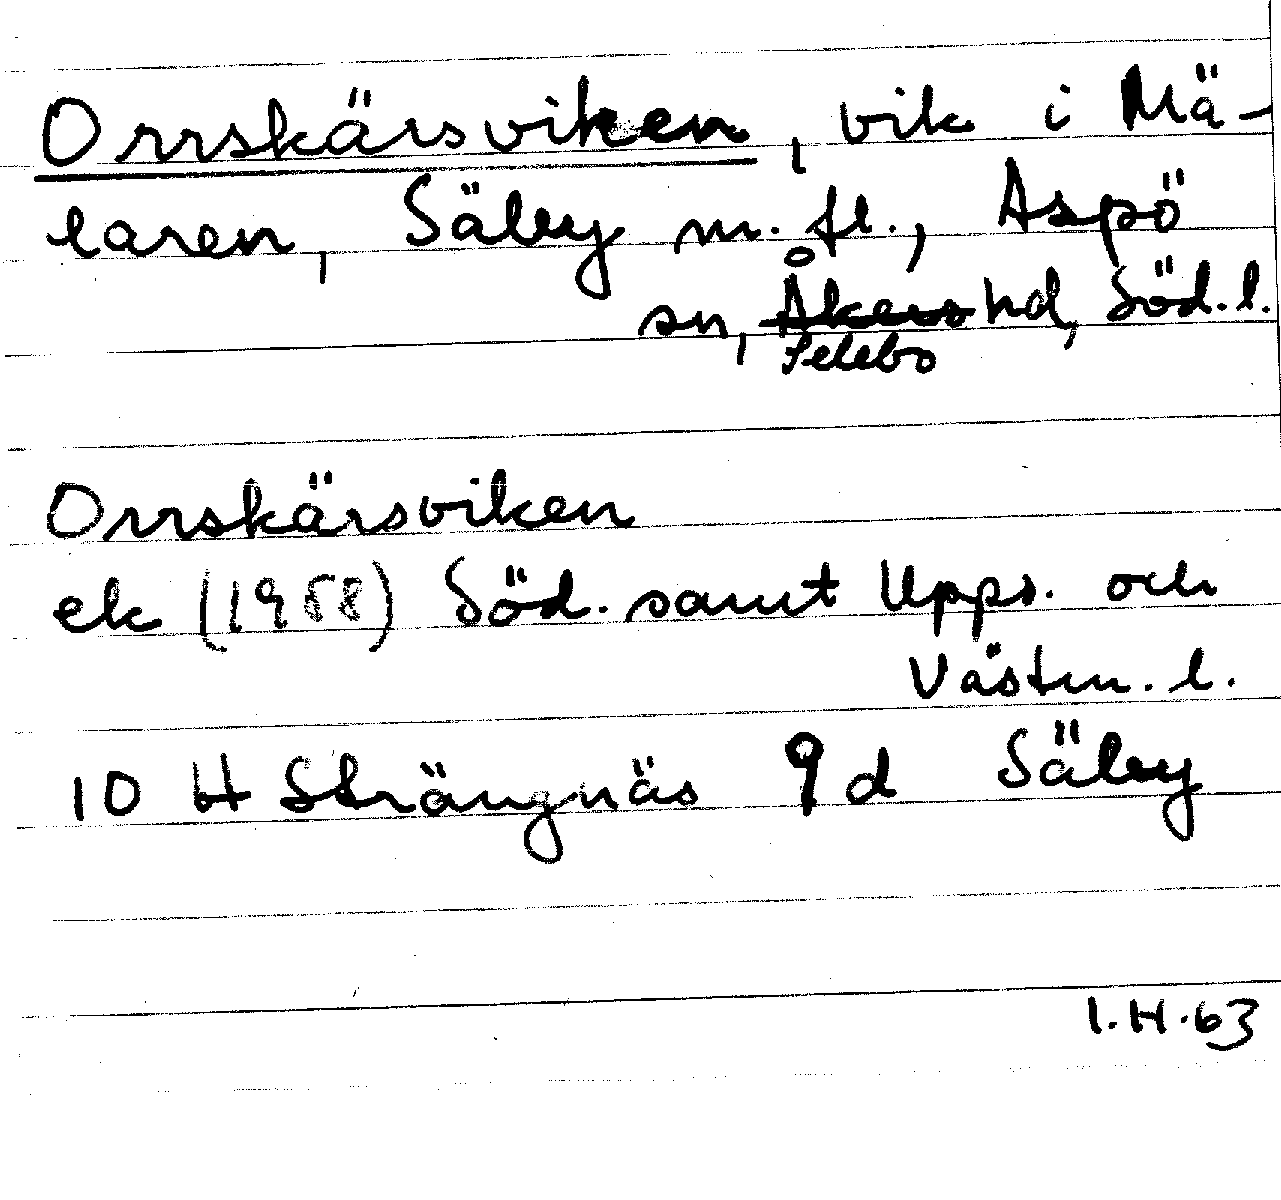 Orrskärsviken, vik i Mä-
laren, Säby m. fl., Aspö
sn, Åkers hd, Söd. l.
Selebo
Orrskärsviken
ek (1958) Söd. samt Upps. och
Västm. l.
10 H Strängnäs 9 d Säby
I.H.63